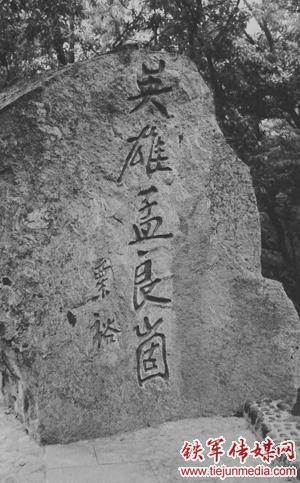 英雄孟良崮
粟裕
铁军传媒网
www.tiejunmedia.com